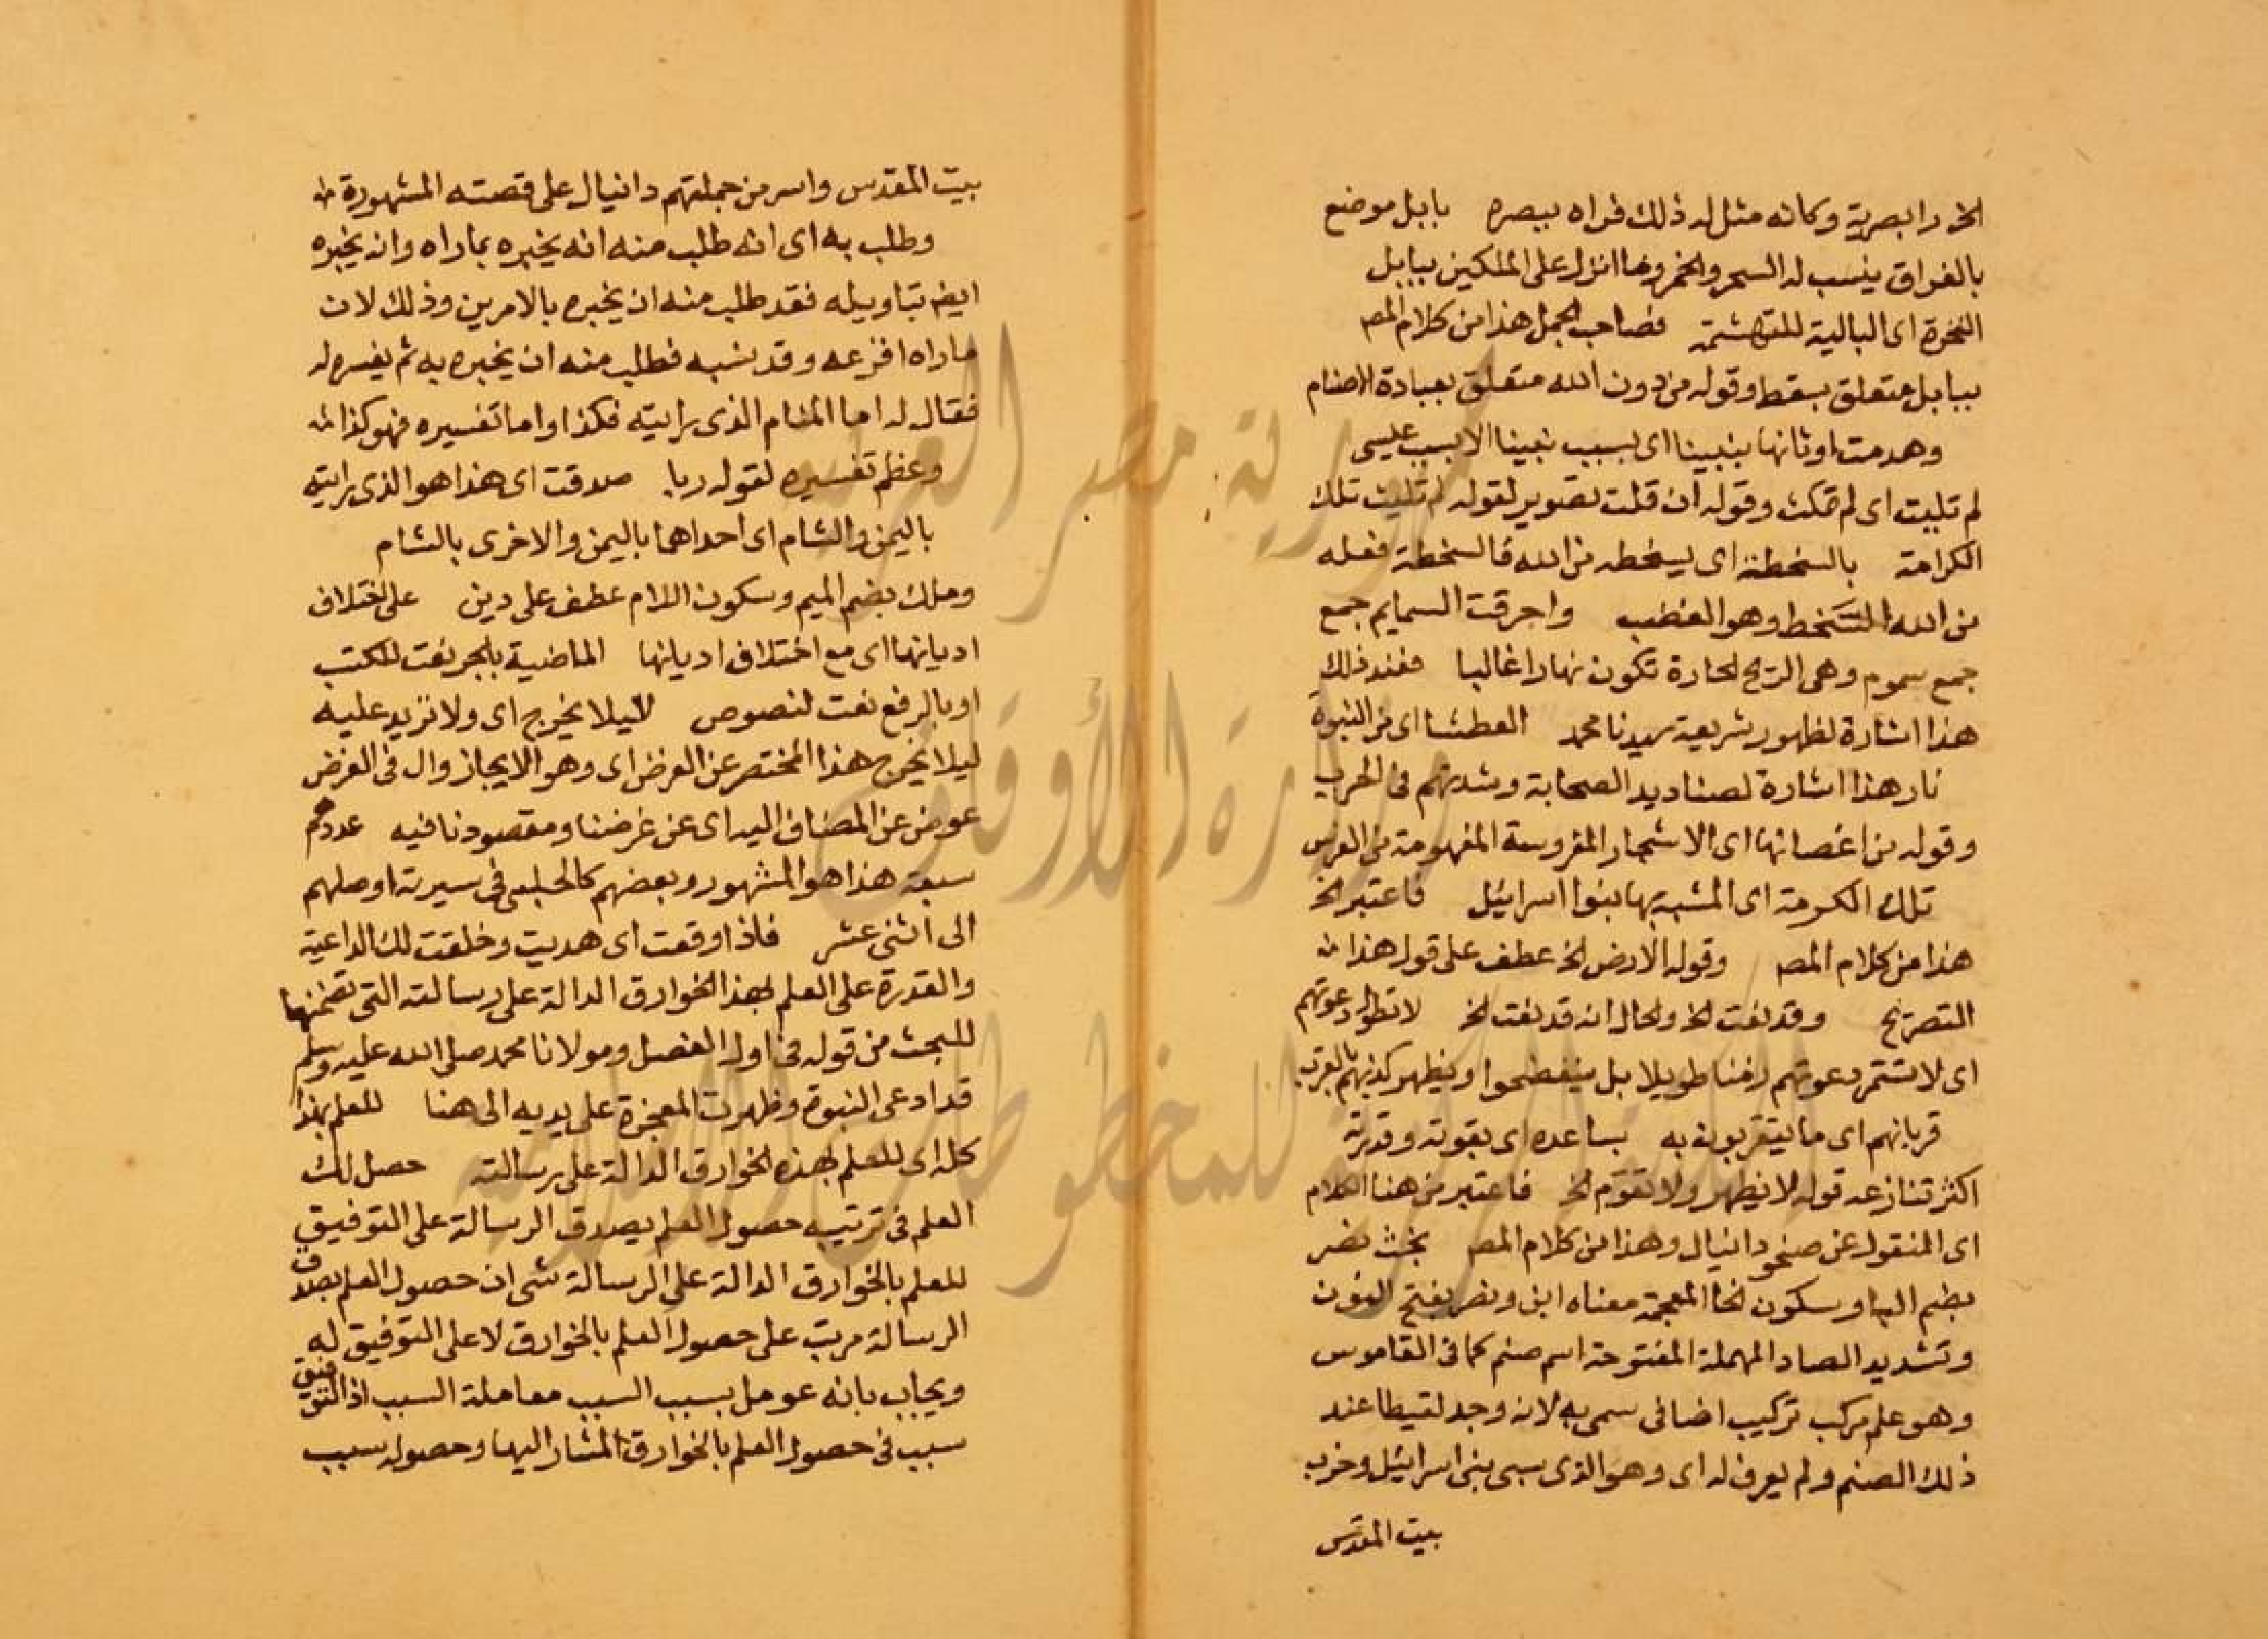 الخ را بصرية وكانه مثل له ذلك فراه ببصره بابل موضع
بالعراق ينسب له السحر والخمر وما انزل على الملكين ببابل
النخرة اى البالية المتهشمة فصاحب الجمل هذا من كلام المص
ببابل متعلق بسقط وقوله من دون الله متعلق بعبادة الاصنام
وهدمت اوثانها بنبينا اى بسبب نبينا لا بسبب عيسى
لم تلبث اى لم تمكث وقوله ان قلت تصوير لقوله لم تلبث تلك
الكرامة بالسخطة اى بسخطه من الله فالسخطة فعله
من الله السخط وهو الغضب واحرقت السمايم جمع
جمع سموم وهى الريح الحارة تكون نهارا غالبا فعند ذلك
هذا اشارة لظهور شريعة سيدنا محمد العطشا اى من النبوة
نار هذا اشارة لصناديد الصحابة وشدتهم فى الحرب
وقوله من اغصانها اى الاشجار المغروسة المفهومة من الغرس
تلك الكرمة اى المشبه بها بنوا اسرائيل فاعتبر الخ
هذا من كلام المص وقوله الارض الخ عطف على قوله هذا
التصريح وقد نعت الخ والحال انه قد نعت الخ لا تطول دعوتهم
اى لا تستمر دعوتهم زمنا طويلا بل ينفضحوا ويظهر كذبهم بالقرب
قربانهم اى ما يتقربون به بساعده اى بقوته وقدرته
اكثر تنازعه قوله لا يظهر ولا تقوم الخ فاعتبر من هنا الكلام
اى المنقول عن صنحو دانيال وهذا من كلام المص بخت نصر
بضم البا وسكون الخا المعجمة معناه ابن ونصر بفتح النون
وتشديد الصاد المهملة المفتوحة اسم صنم كما فى القاموس
وهو علم مركب تركيب اضافى سمى به لانه وجد لقيطا عند
ذلك الصنم ولم يعرف له اى وهو الذى سبى بنى اسرائيل وخرب
بيت المقدس
بيت المقدس واسر من جملتهم دانيال على قصته المشهورة
وطلب به اى انه طلب منه انه يخبره بما راه وان يخبره
ايض بتاويله فقد طلب منه ان يخبره بالامرين وذلك لان
ما راه افزعه وقد نسبه فطلب منه ان يخبره به ثم يفسره له
فقال له اما المنام الذى رايته فكذا واما تفسيره فهو كذا
وعظم تفسيره لقوله ربا صدقت اى هذا هو الذى رايته
باليمن والشام اى احداهما باليمن والاخرى بالشام
وملك بضم الميم وسكون اللام عطف على دين على اختلاف
اديانها اى مع اختلاف اديانها الماضية بالجر نعت للكتب
او بالرفع نعت لنصوص ليلا يخرج اى ولا نزيد عليه
ليلا يخرج هذا المختصر عن الغرض اى وهو الايجاز وال فى الغرض
عوض عن المضاف اليه اى عن غرضنا ومقصودنا فيه عددهم
سبعة هذا هو المشهور وبعضهم كالحلبى فى سيرته اوصلهم
الى اثنى عشر فاذا وقعت اى هديت وخلقت لك الداعية
والقدرة على العلم لهذا الخوارق الدالة على رسالته التى تضمنها
للبحث من قوله فى اول الفصل ومولانا محمد صلى الله عليه وسلم
قد ادعى النبوة وظهرت المعجزة على يديه الى هنا للعلم بهذا
كله اى للعلم بهذه الخوارق الدالة على رسالته حصل لك
العلم فى ترتيبه حصول العلم بصدق الرسالة على التوفيق
للعلم بالخوارق الدالة على الرسالة شى ان حصول العلم بصدق
الرسالة مرتب على حصول العلم بالخوارق لا على التوفيق له
ويجاب بانه عومل بسبب السبب معاملة السبب اذ التوفيق
سبب فى حصول العلم بالخوارق المشار اليها وحصوله سبب
جمهورية مصر العربية
وزارة الأوقاف
المكتبة المركزية للمخطوطات الإسلامية